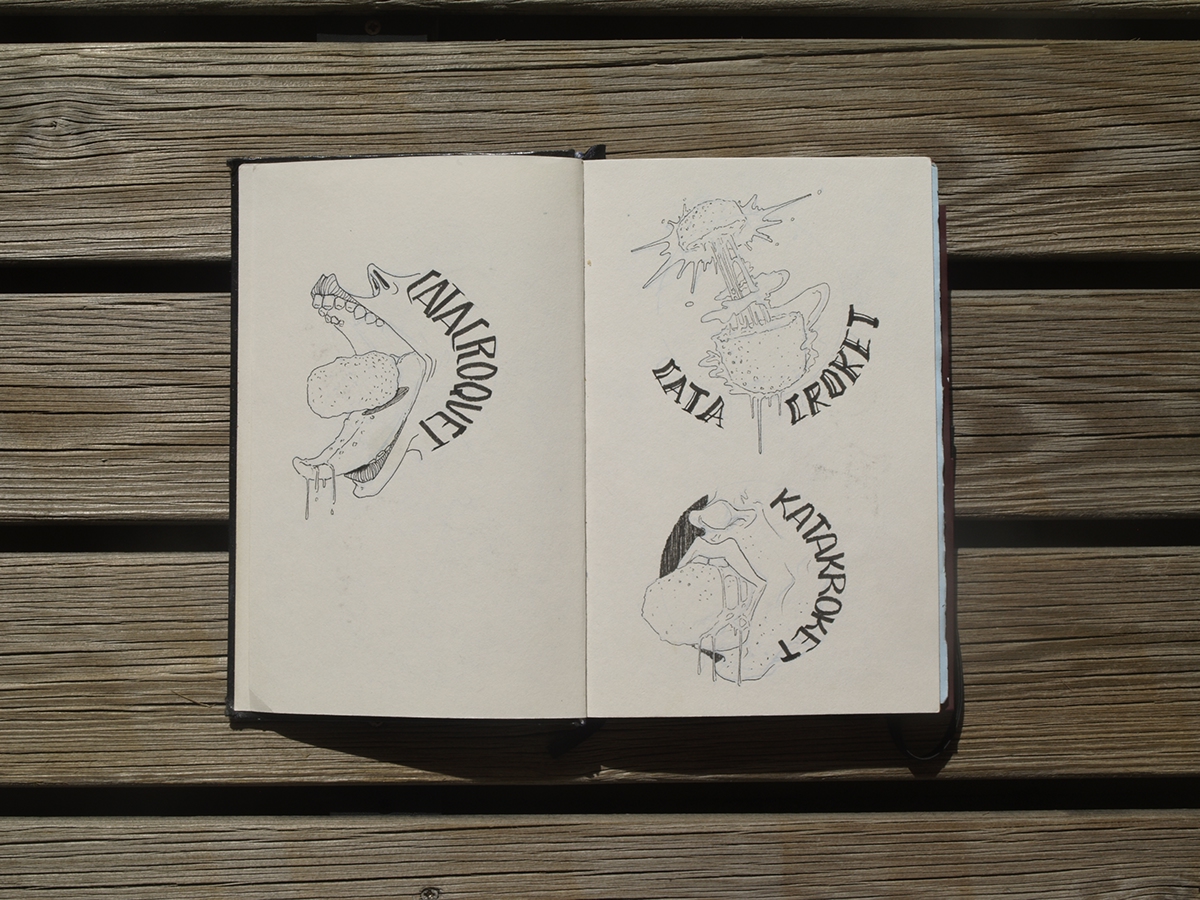 CATACROQUET
CATA CROKET
KATAKROKET